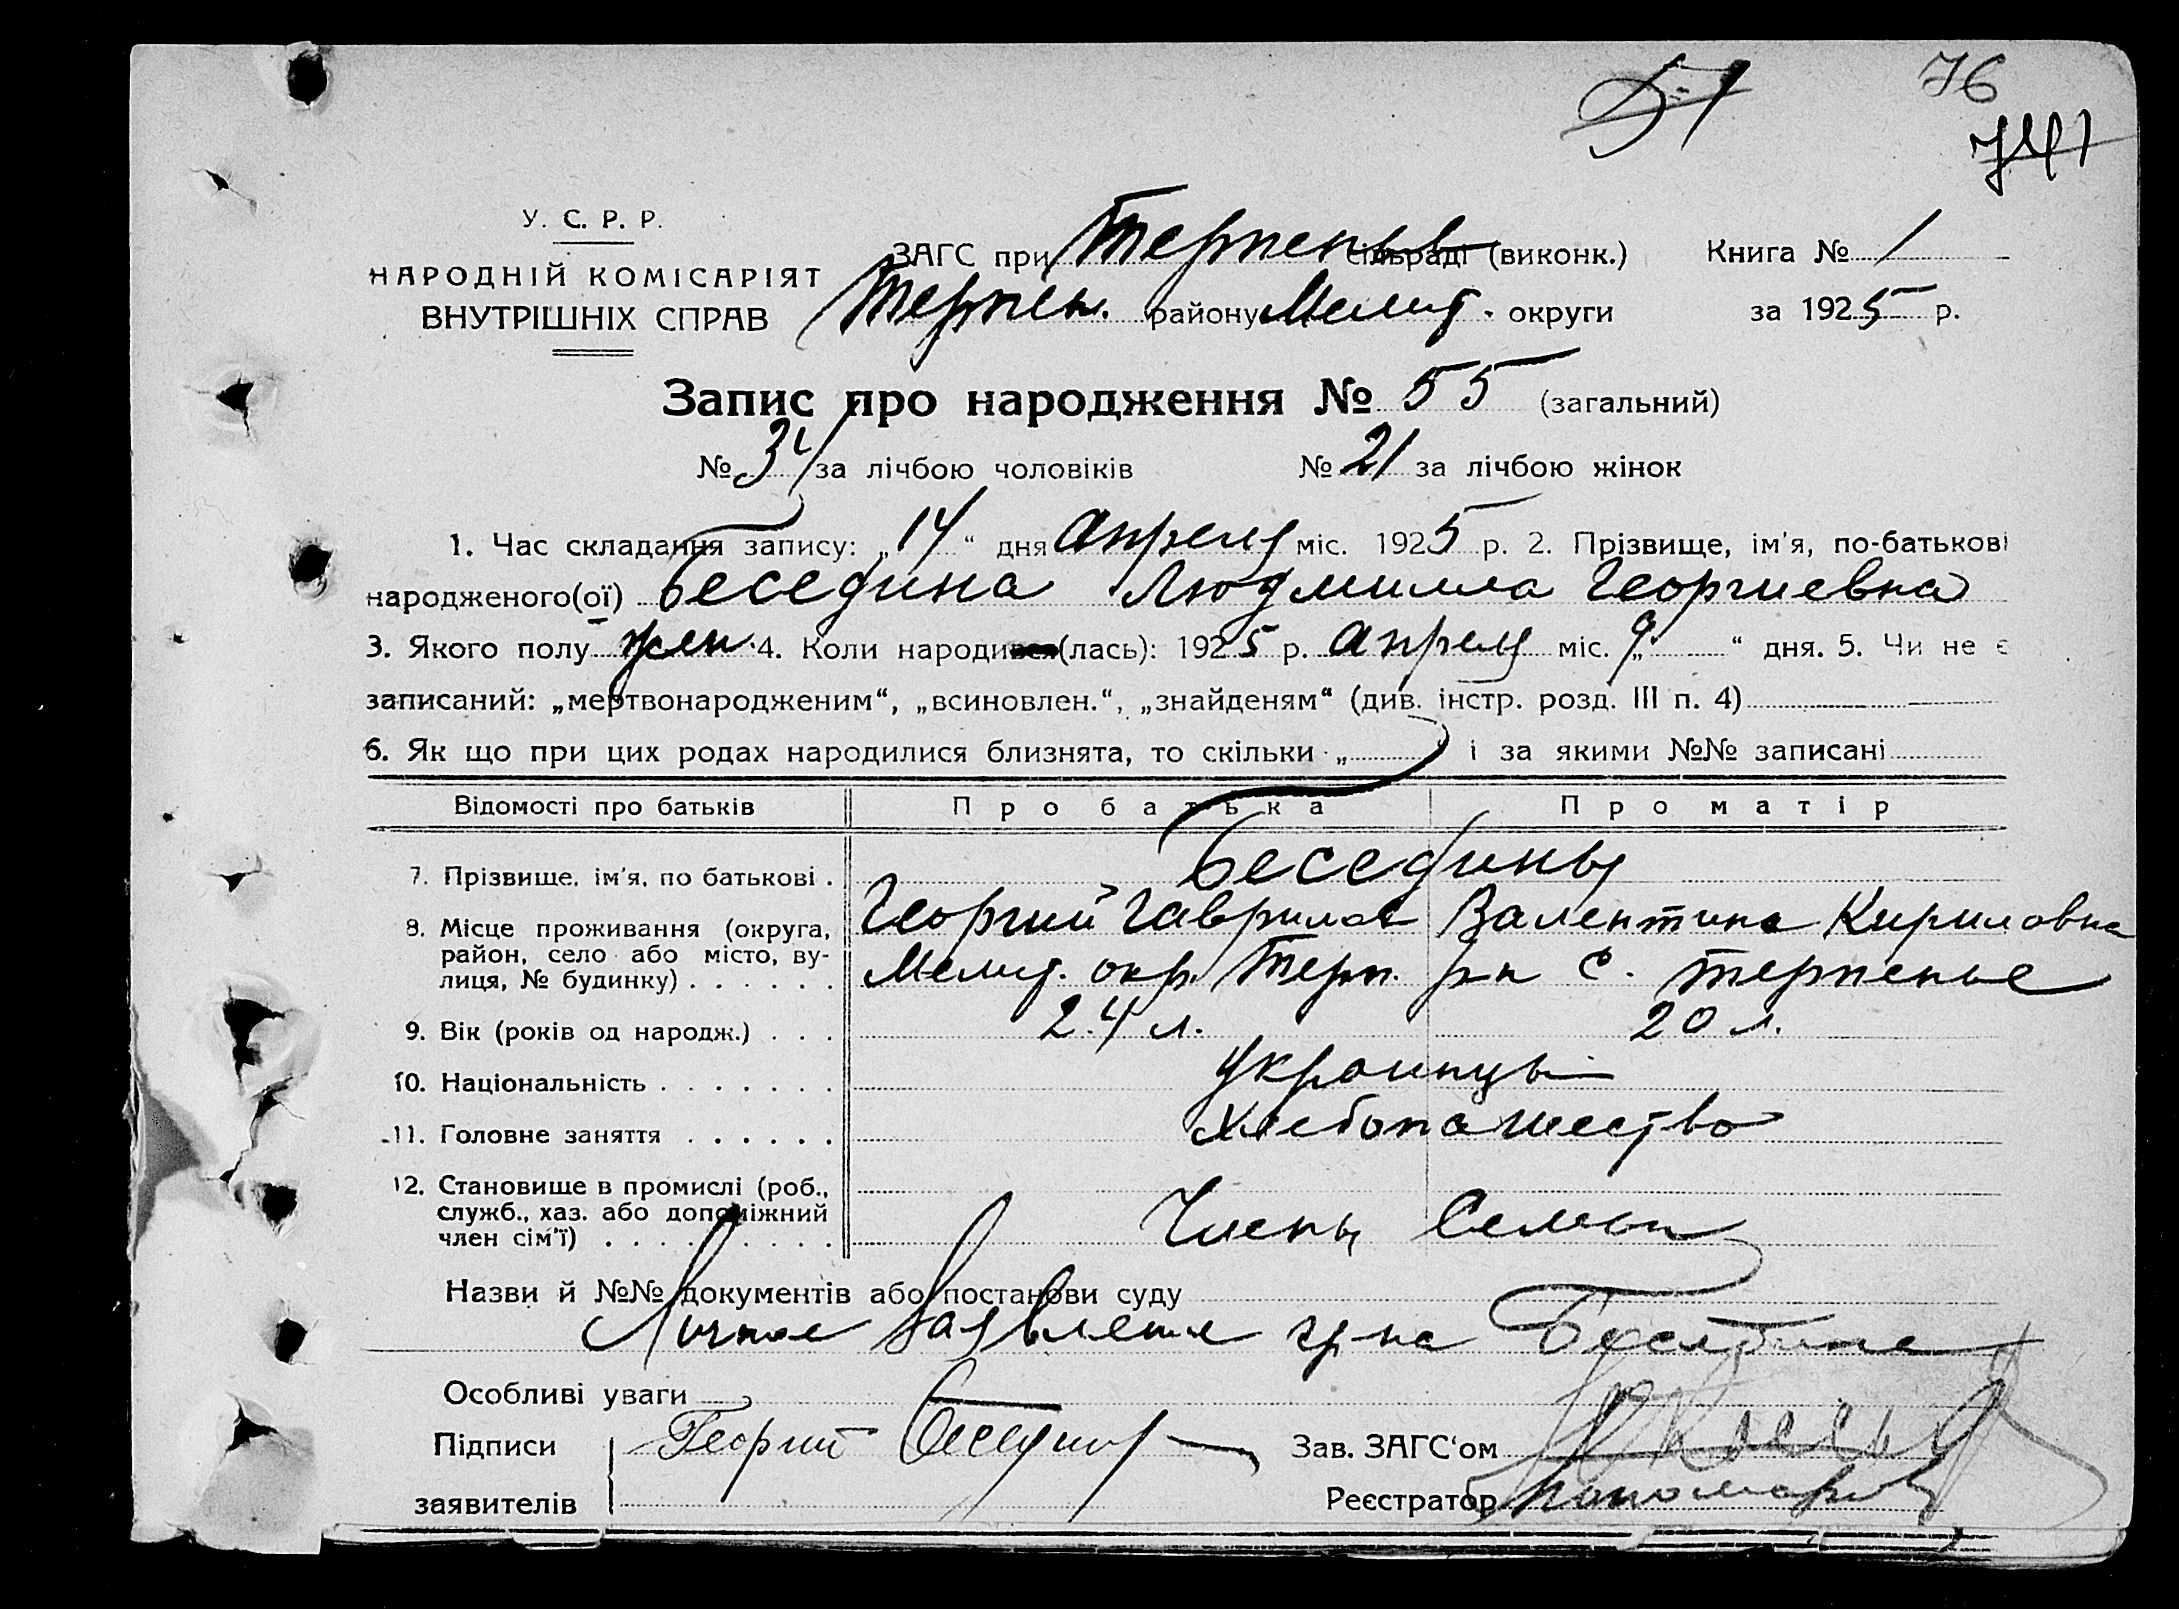 51
76
741
У. С. Р. Р.
НАРОДНІЙ КОМІСАРІЯТ
ВНУТРІШНІХ СПРАВ
ЗАГС при Терпеньев сільраді (виконк.) Книга № 1
Терпен. району Мелит. округи за 1925 р.
Запис про народження № 55 (загальний)
№ 34 за лічбою чоловіків № 21 за лічбою жінок
1. Час складання запису: „14“ дня Апреля міс. 1925 р. 2. Прізвище, ім'я, по-батькові
народженого(ої) Беседина Людмилла Георгиевна
3. Якого полу жен. 4. Коли народився(лась): 1925 р. Апреля міс. „9“ дня. 5. Чи не є
записаний: „мертвонародженим“, „всиновлен.“, „знайденям“ (див. інстр. розд. III п. 4)
6. Як що при цих родах народилися близнята, то скільки „ “ і за якими №№ записані
Відомості про батьків Про батька Про матір
7. Прізвище, ім'я, по батькові . Беседины
8. Місце проживання (округа, Георгий Гаврилов Валентина Кириловна
район, село або місто, ву-
лиця, № будинку) . . . . . . Мелит. окр. Терп. р-н с. Терпенье
9. Вік (років од народж.) . . . 24 л. 20 л.
10. Національність . . . . . . . Украинцы
11. Головне заняття . . . . . . Хлебопашество
12. Становище в промислі (роб.,
служб., хаз. або допоміжний
член сім'ї) . . . . . . . . . Члены Семьи
Назви й №№ документів або постанови суду
Личное Заявление гр-на Беседина
Особливі уваги
Підписи Георгий Беседин Зав. ЗАГС'ом
заявителів Реєстратор Пономарев